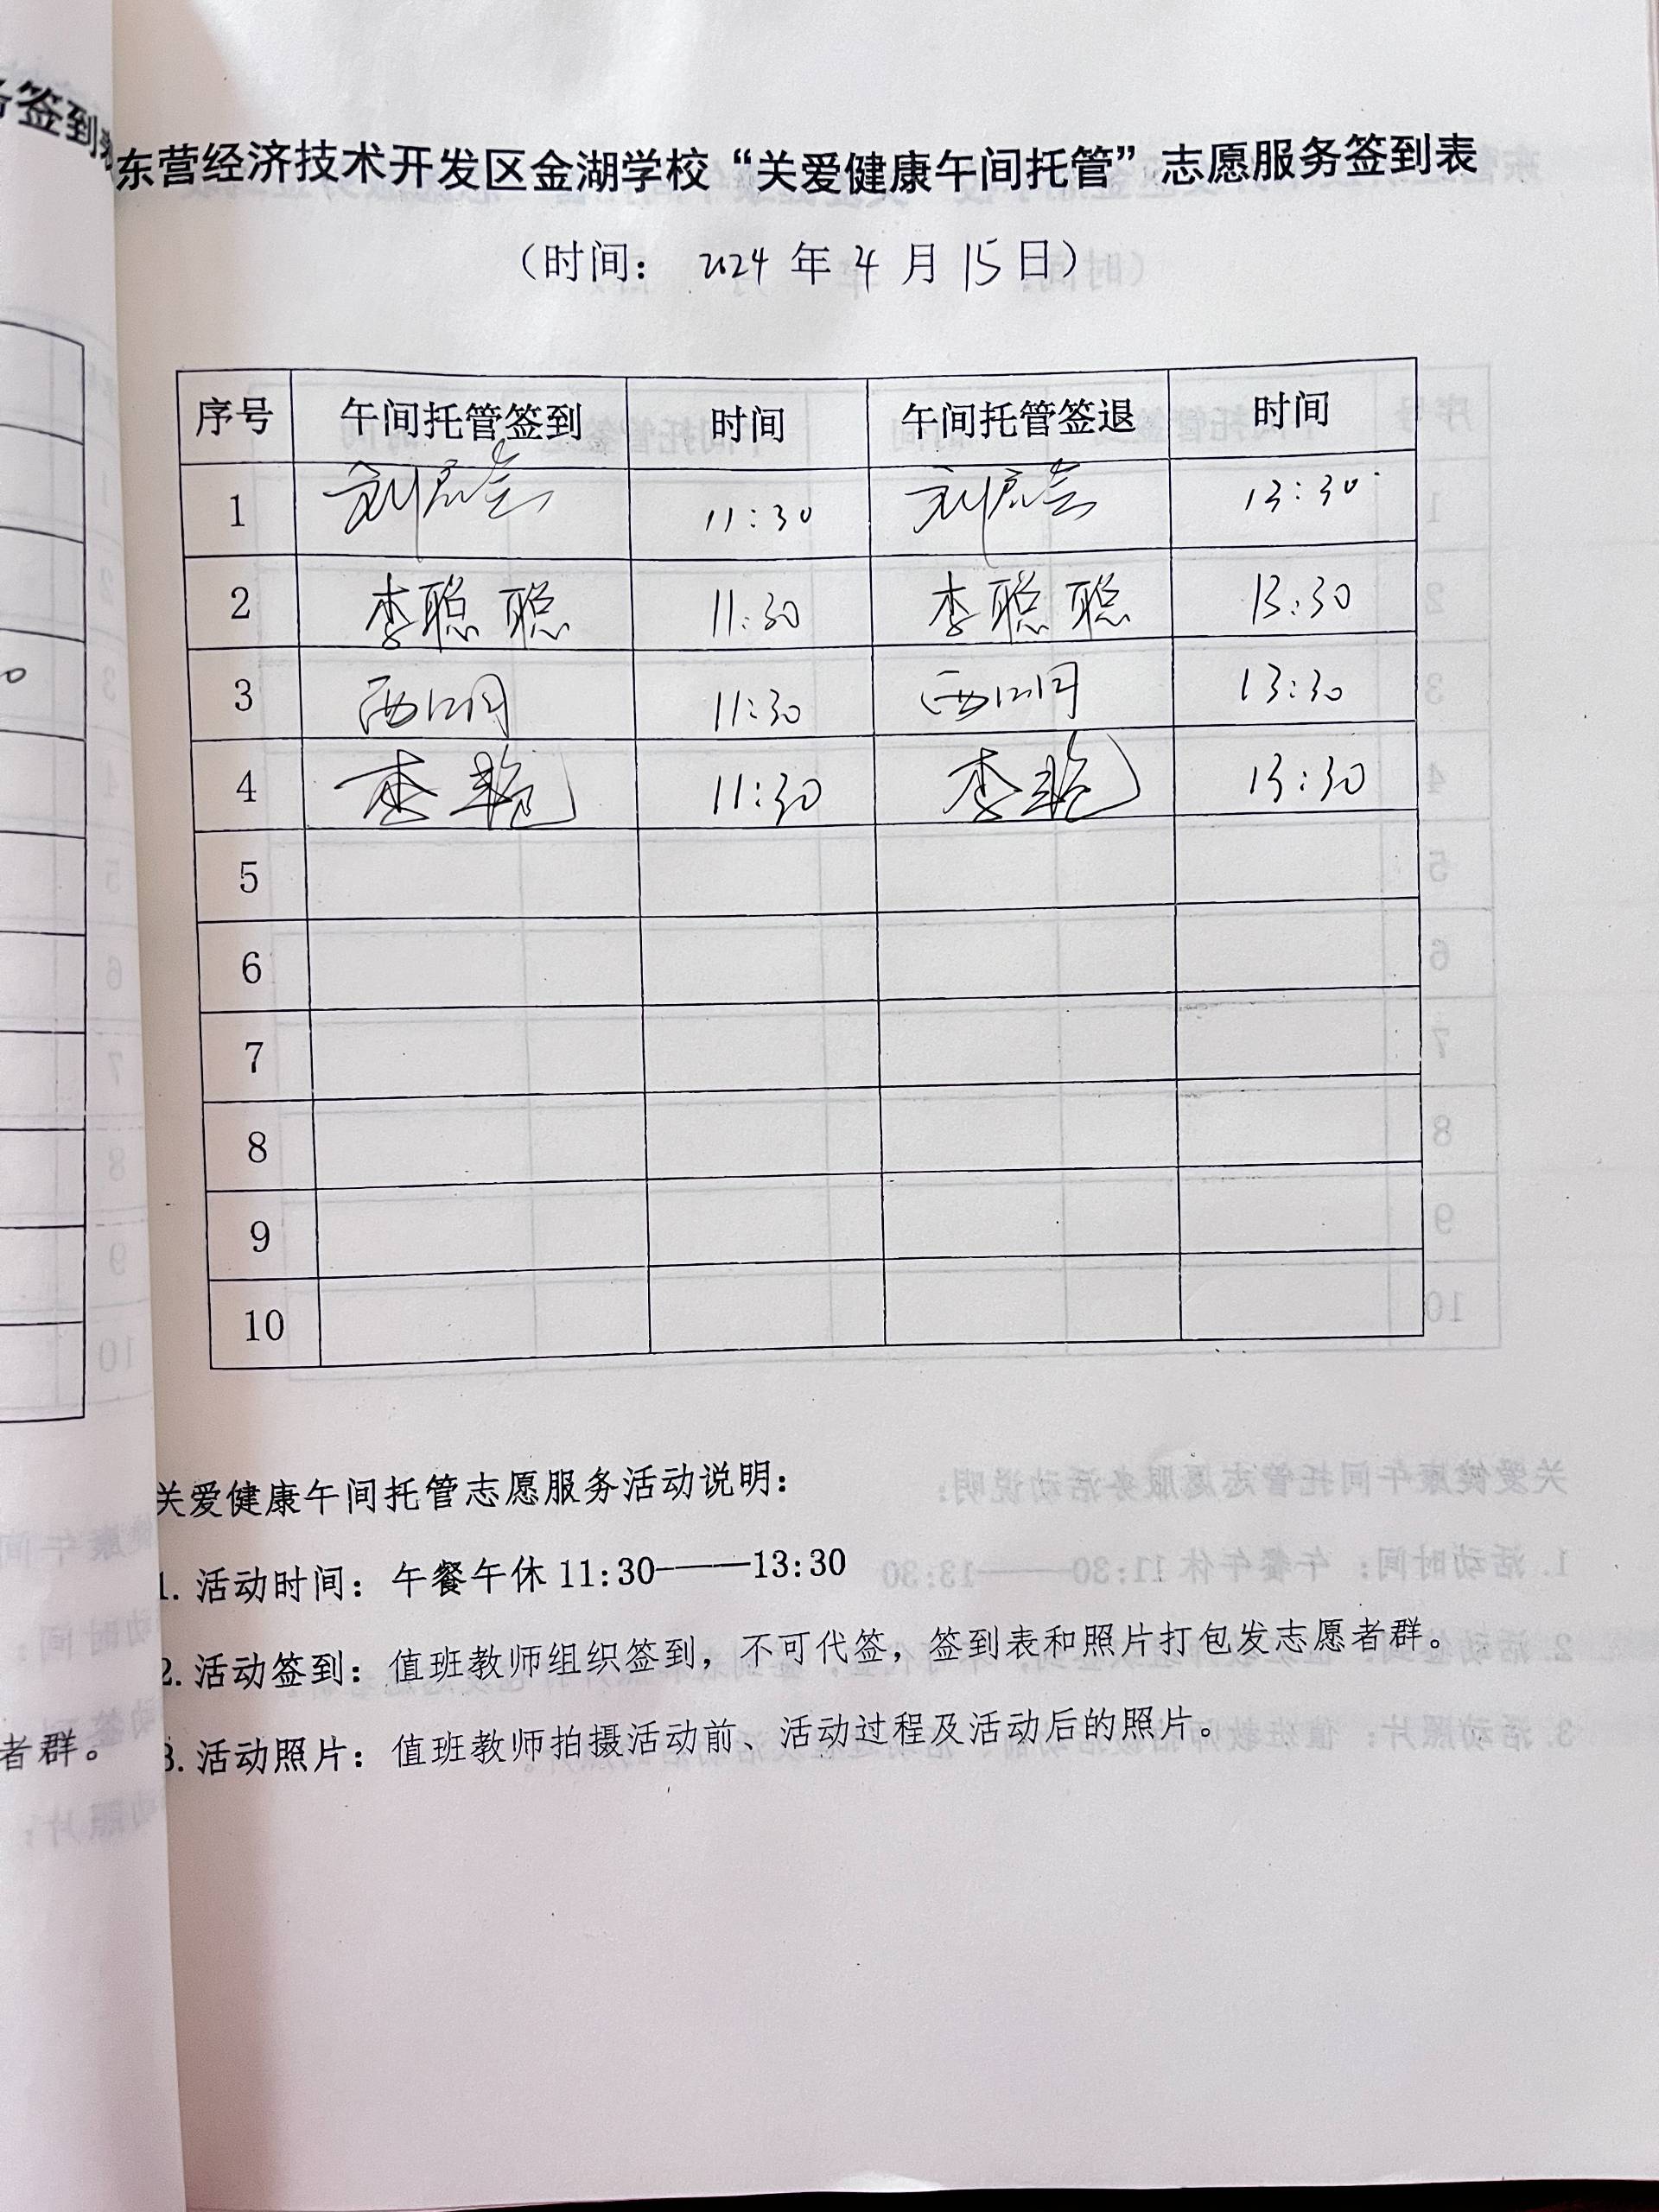 务签到表
东营经济技术开发区金湖学校“关爱健康午间托管”志愿服务签到表
（时间： 2024 年 4 月 15 日）
序号 午间托管签到 时间 午间托管签退 时间
1 刘 11:30 刘 13:30
2 李聪聪 11:30 李聪聪 13:30
3 11:30 13:30
4 李艳 11:30 李艳 13:30
5
6
7
8
9
10
关爱健康午间托管志愿服务活动说明：
1. 活动时间：午餐午休 11:30———13:30
2. 活动签到：值班教师组织签到，不可代签，签到表和照片打包发志愿者群。
3. 活动照片：值班教师拍摄活动前、活动过程及活动后的照片。
者群。